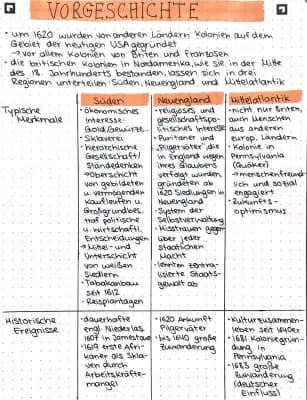 VORGESCHICHTE
• um 1620 wurden von anderen Ländern Kolonien auf dem
Gebiet der heutigen USA gegründet
→ vor allem Kolonien von Briten und Franzosen
• die britischen Kolonien in Nordamerika, wie sie in der Mitte
des 18. Jahrhunderts bestanden, lassen sich in drei
Regionen unterteilen: Süden, Neuengland und Mittelatlantik
Typische
Merkmale
Süden
• ökonomisches
Interesse:
Gold/Gewürze...
• Sklaverei
• hierarchische
Gesellschaft/
Ständedenken
→ Oberschicht
von gebildeten
u. vermögenden
Kaufleuten u.
Großgrundbes.
traf politische
u. wirtschaftl.
Entscheidungen
→ Mittel- und
Unterschicht
von weißen
Siedlern
• Tabakanbau
seit 1612
• Reisplantagen
Neuengland
• religiöses und
gesellschaftspo-
litisches Interesse
• Puritaner und
„Pilgerväter" die
in England wegen
ihres Glaubens
verfolgt wurden,
gründeten ab
1620 Siedlungen in
Neuengland
• System der
Selbstverwaltung
• Misstrauen gegen-
über jeder
staatlichen
Macht
• lehnten zentra-
lisierte Staats-
gewalt ab
Mittelatlantik
• nicht nur Briten,
auch Menschen
aus anderen
europ. Ländern
• Kolonie in
Pennsylvania
(Quäker)
→ menschenfreund-
lich und sozial
engagiert
• Zukunfts-
optimismus
Historische
Ereignisse
• dauerhafte
engl. Niederlas.
1607 in Jamestown
• 1619 erste Afri-
kaner als Skla-
ven durch
Arbeitskräfte-
mangel
• 1620 Ankunft
Pilgerväter
• bis 1640 große
Zuwanderung
• Kulturzusammen-
leben seit 1640er
• 1681 Koloniegrün-
dung in
Pennsylvania
• 1683 große
Zuwanderung
(deutscher
Einfluss)